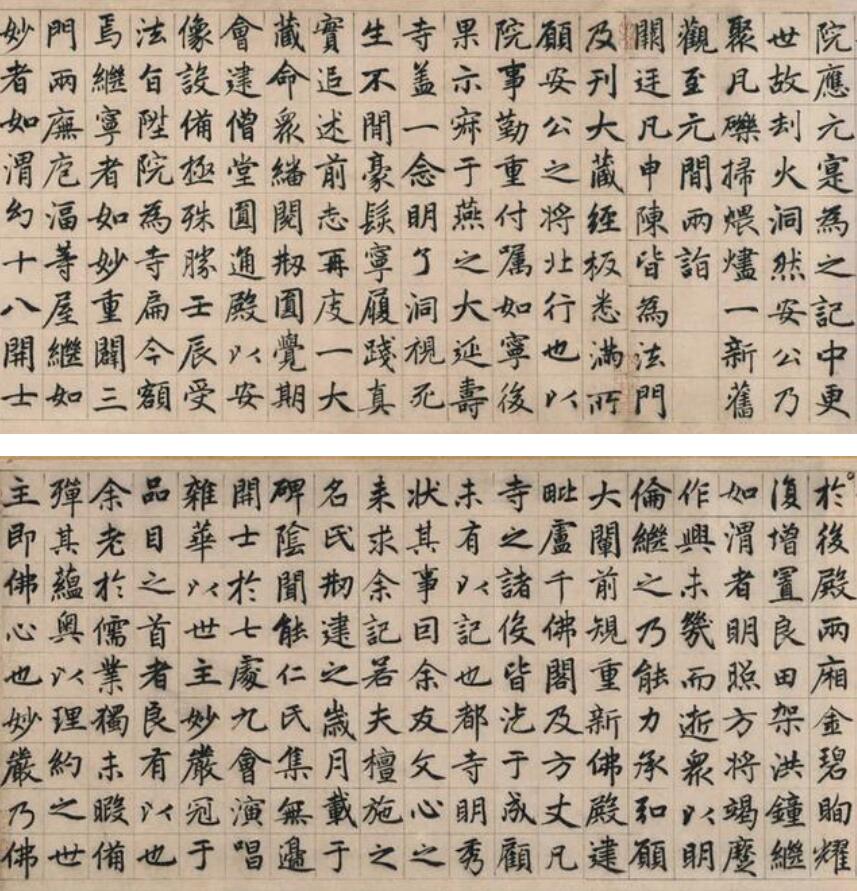 院應元寔為之記中更
世故刦火洞然安公乃
聚凡礫掃煨燼一新舊
觀至元間兩詣
闕廷凡申陳皆為法門
及刊大藏經板悉滿所
願安公之將北行也以
院事勤重付囑如寧後
果示寂于燕之大延壽
寺蓋一念明了洞視死
生不間豪髮寧履踐真
實追述前志再度一大
藏命眾繙閱刱圓覺期
會建僧堂圓通殿以安
像設備極殊勝壬辰受
法旨陞院為寺扁今額
焉繼寧者如妙重闢三
門兩廡庖湢等屋繼如
妙者如渭約十八開士
於後殿兩廂金碧眴耀
復增置良田架洪鐘繼
如渭者明照方將竭麼
作興未幾而逝眾以明
倫繼之乃能力承和願
大闡前規重新佛殿建
毗盧千佛閣及方丈凡
寺之諸役皆汔于成顧
未有以記也都寺明秀
狀其事囙余友文心之
来求余記若夫檀施之
名氏刱建之歲月載于
碑陰聞能仁氏集無邊
開士於七處九會演唱
雜華以世主妙嚴冠于
品目之首者良有以也
余老於儒業獨未暇備
殫其蘊奧以理約之世
主即佛心也妙嚴乃佛